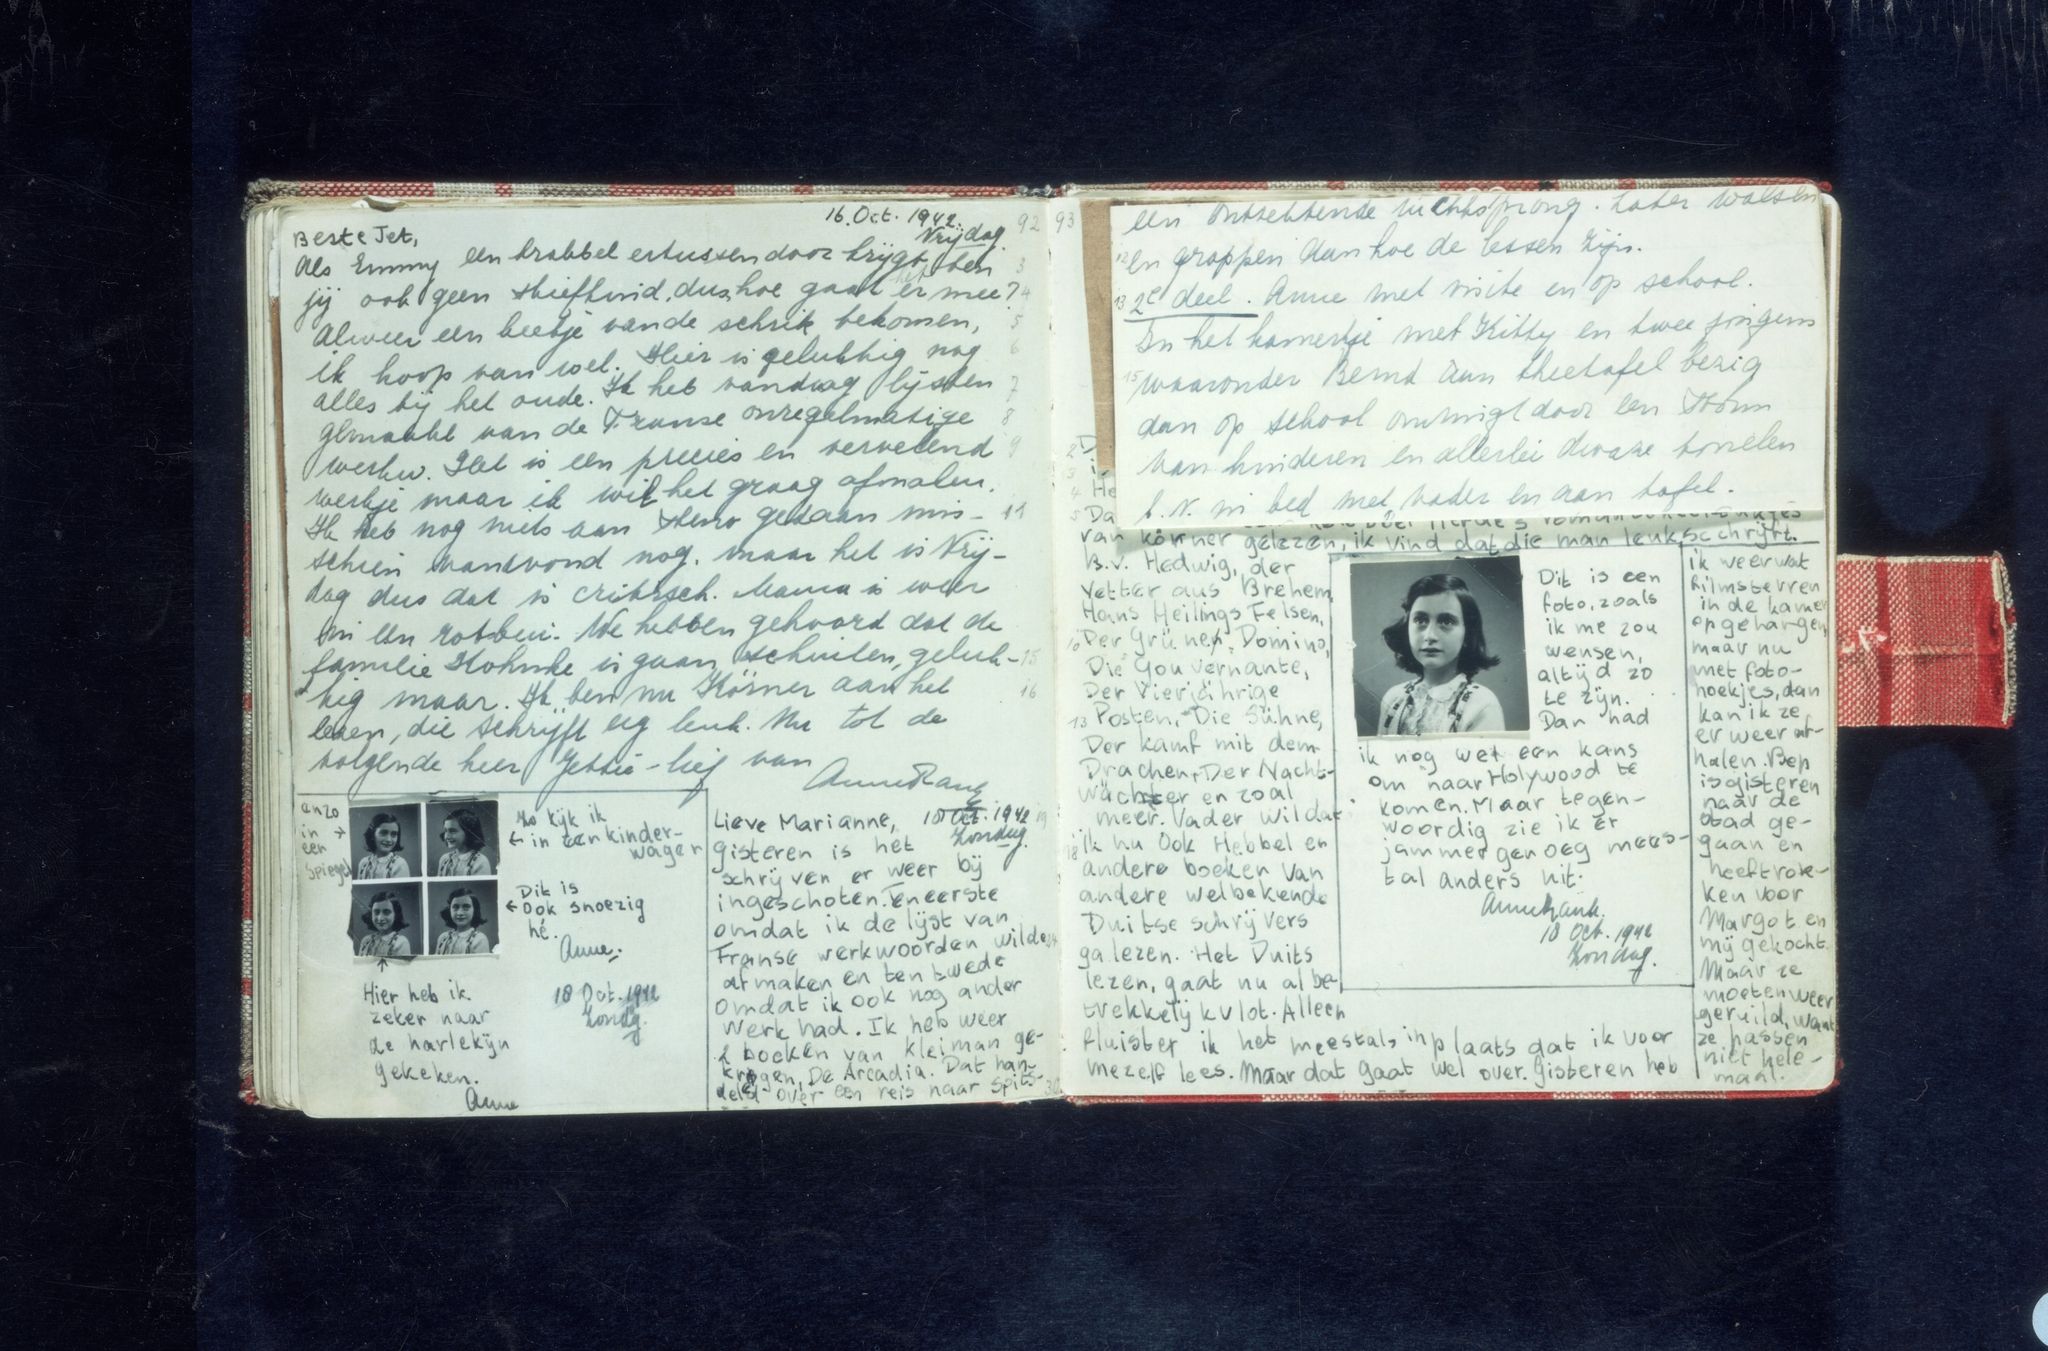 16. Oct. 1942.
Vrijdag.
92
Beste Jet,
Als Emmy een krabbel ertussendoor krijgt, ben
jij ook geen stiefkind, dus, hoe gaat het er mee?
Alweer een beetje van de schrik bekomen,
ik hoop van wel. Hier is gelukkig nog
alles bij het oude. Ik heb vandaag lijsten
gemaakt van de Franse onregelmatige
werkw. Het is een precies en vervelend
werkje maar ik wil het graag afmaken.
Ik heb nog niets aan steno gedaan mis-
schien vanavond nog. maar het is Vrij-
dag dus dat is critisch. Mama is weer
in een rotbui. We hebben gehoord dat de
familie is gaan schuilen, geluk-
kig maar. Ik ben nu Körner aan het
lezen, die schrijft erg leuk. Nu tot de
volgende keer Jettie-lief van
Anne Frank
en zo
in →
een
spiegel
Zo kijk ik
← in een kinder-
wagen
Dit is
← ook snoezig
hé.
Anne.
↑
Hier heb ik
zeker naar
de harlekijn
gekeken.
Anne
18 Oct. 1942
Zondag.
18 Oct. 1942
Zondag.
Lieve Marianne,
Gisteren is het
schrijven er weer bij
ingeschoten. Teneerste
omdat ik de lijst van
Franse werkwoorden wilde
afmaken en ten twede
omdat ik ook nog ander
werk had. Ik heb weer
2 boeken van Kleiman ge-
kregen, De Arcadia. Dat han-
deld over een reis naar Spits-
93
een ontzettende luchtsprong. Later walsen
en grappen aan hoe de lessen zijn.
2e deel. Anne met visite en op school.
In het kamertje met Kitty en twee jongens
waaronder Bernd aan theetafel bezig
dan op school omringt door een stroom
van kinderen en allerlei dwaze tonelen
b.v. in bed met vader en aan tafel.
van körner gelezen, ik vind dat die man leuk schrijft.
B.v. Hedwig, der
Vetter aus Brehem,
Hans Heilings Felsen,
Der Grünen Domino,
Die Gouvernante,
Der Vierjährige
Posten, Die Sühne,
Der kamf mit dem
Drachen, Der Nacht-
wächter en zoal
meer. Vader wil dat
ik nu Ook Hebbel en
andere boeken van
andere welbekende
Duitse schrijvers
ga lezen. Het Duits
lezen, gaat nu al be-
trekkelijk vlot. Alleen
fluister ik het meestal, inplaats dat ik voor
mezelf lees. Maar dat gaat wel over. Gisteren heb
Dit is een
foto, zoals
ik me zou
wensen,
altijd zo
te zijn.
Dan had
ik nog wel een kans
om naar Holywood te
komen. Maar tegen-
woordig zie ik er
jammer genoeg mees-
tal anders uit.
Annefrank.
18 Oct. 1942
Zondag.
ik weer wat
filmsterren
in de kamer
opgehangen,
maar nu
met foto-
hoekjes, dan
kan ik ze
er weer af-
halen. Bep
is gisteren
naar de
stad ge-
gaan en
heeft rok-
ken voor
Margot en
mij gekocht.
Maar ze
moeten weer
geruild, want
ze passen
niet hele-
maal.